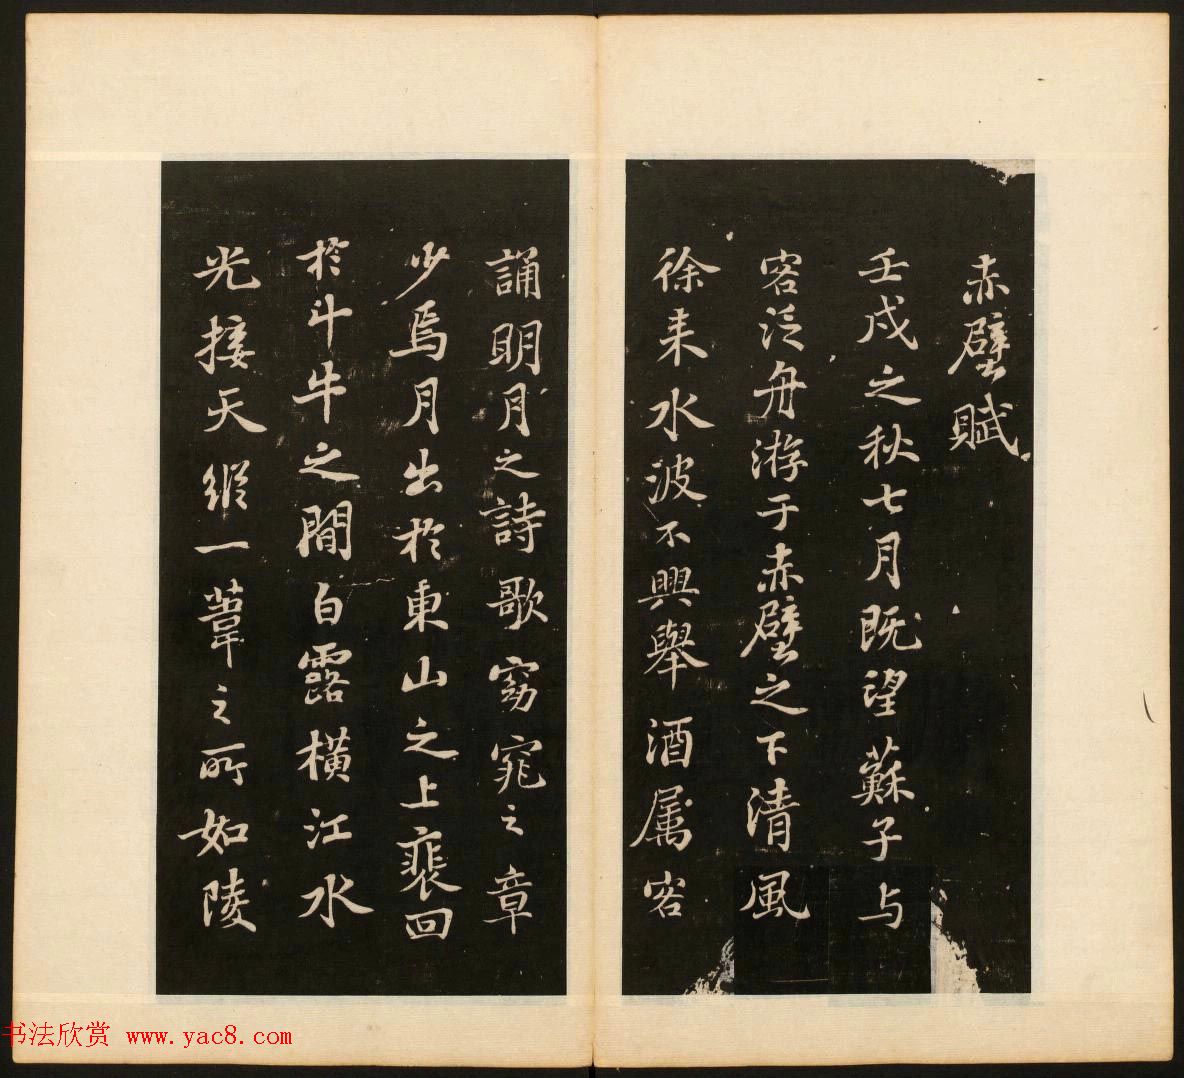 赤壁賦
壬戌之秋七月既望蘇子与
客泛舟游于赤壁之下清風
徐来水波不興舉酒属客
誦明月之詩歌窈窕之章
少焉月出於東山之上裴回
於斗牛之間白露橫江水
光接天縱一葦之所如陵
书法欣赏 www.yac8.com